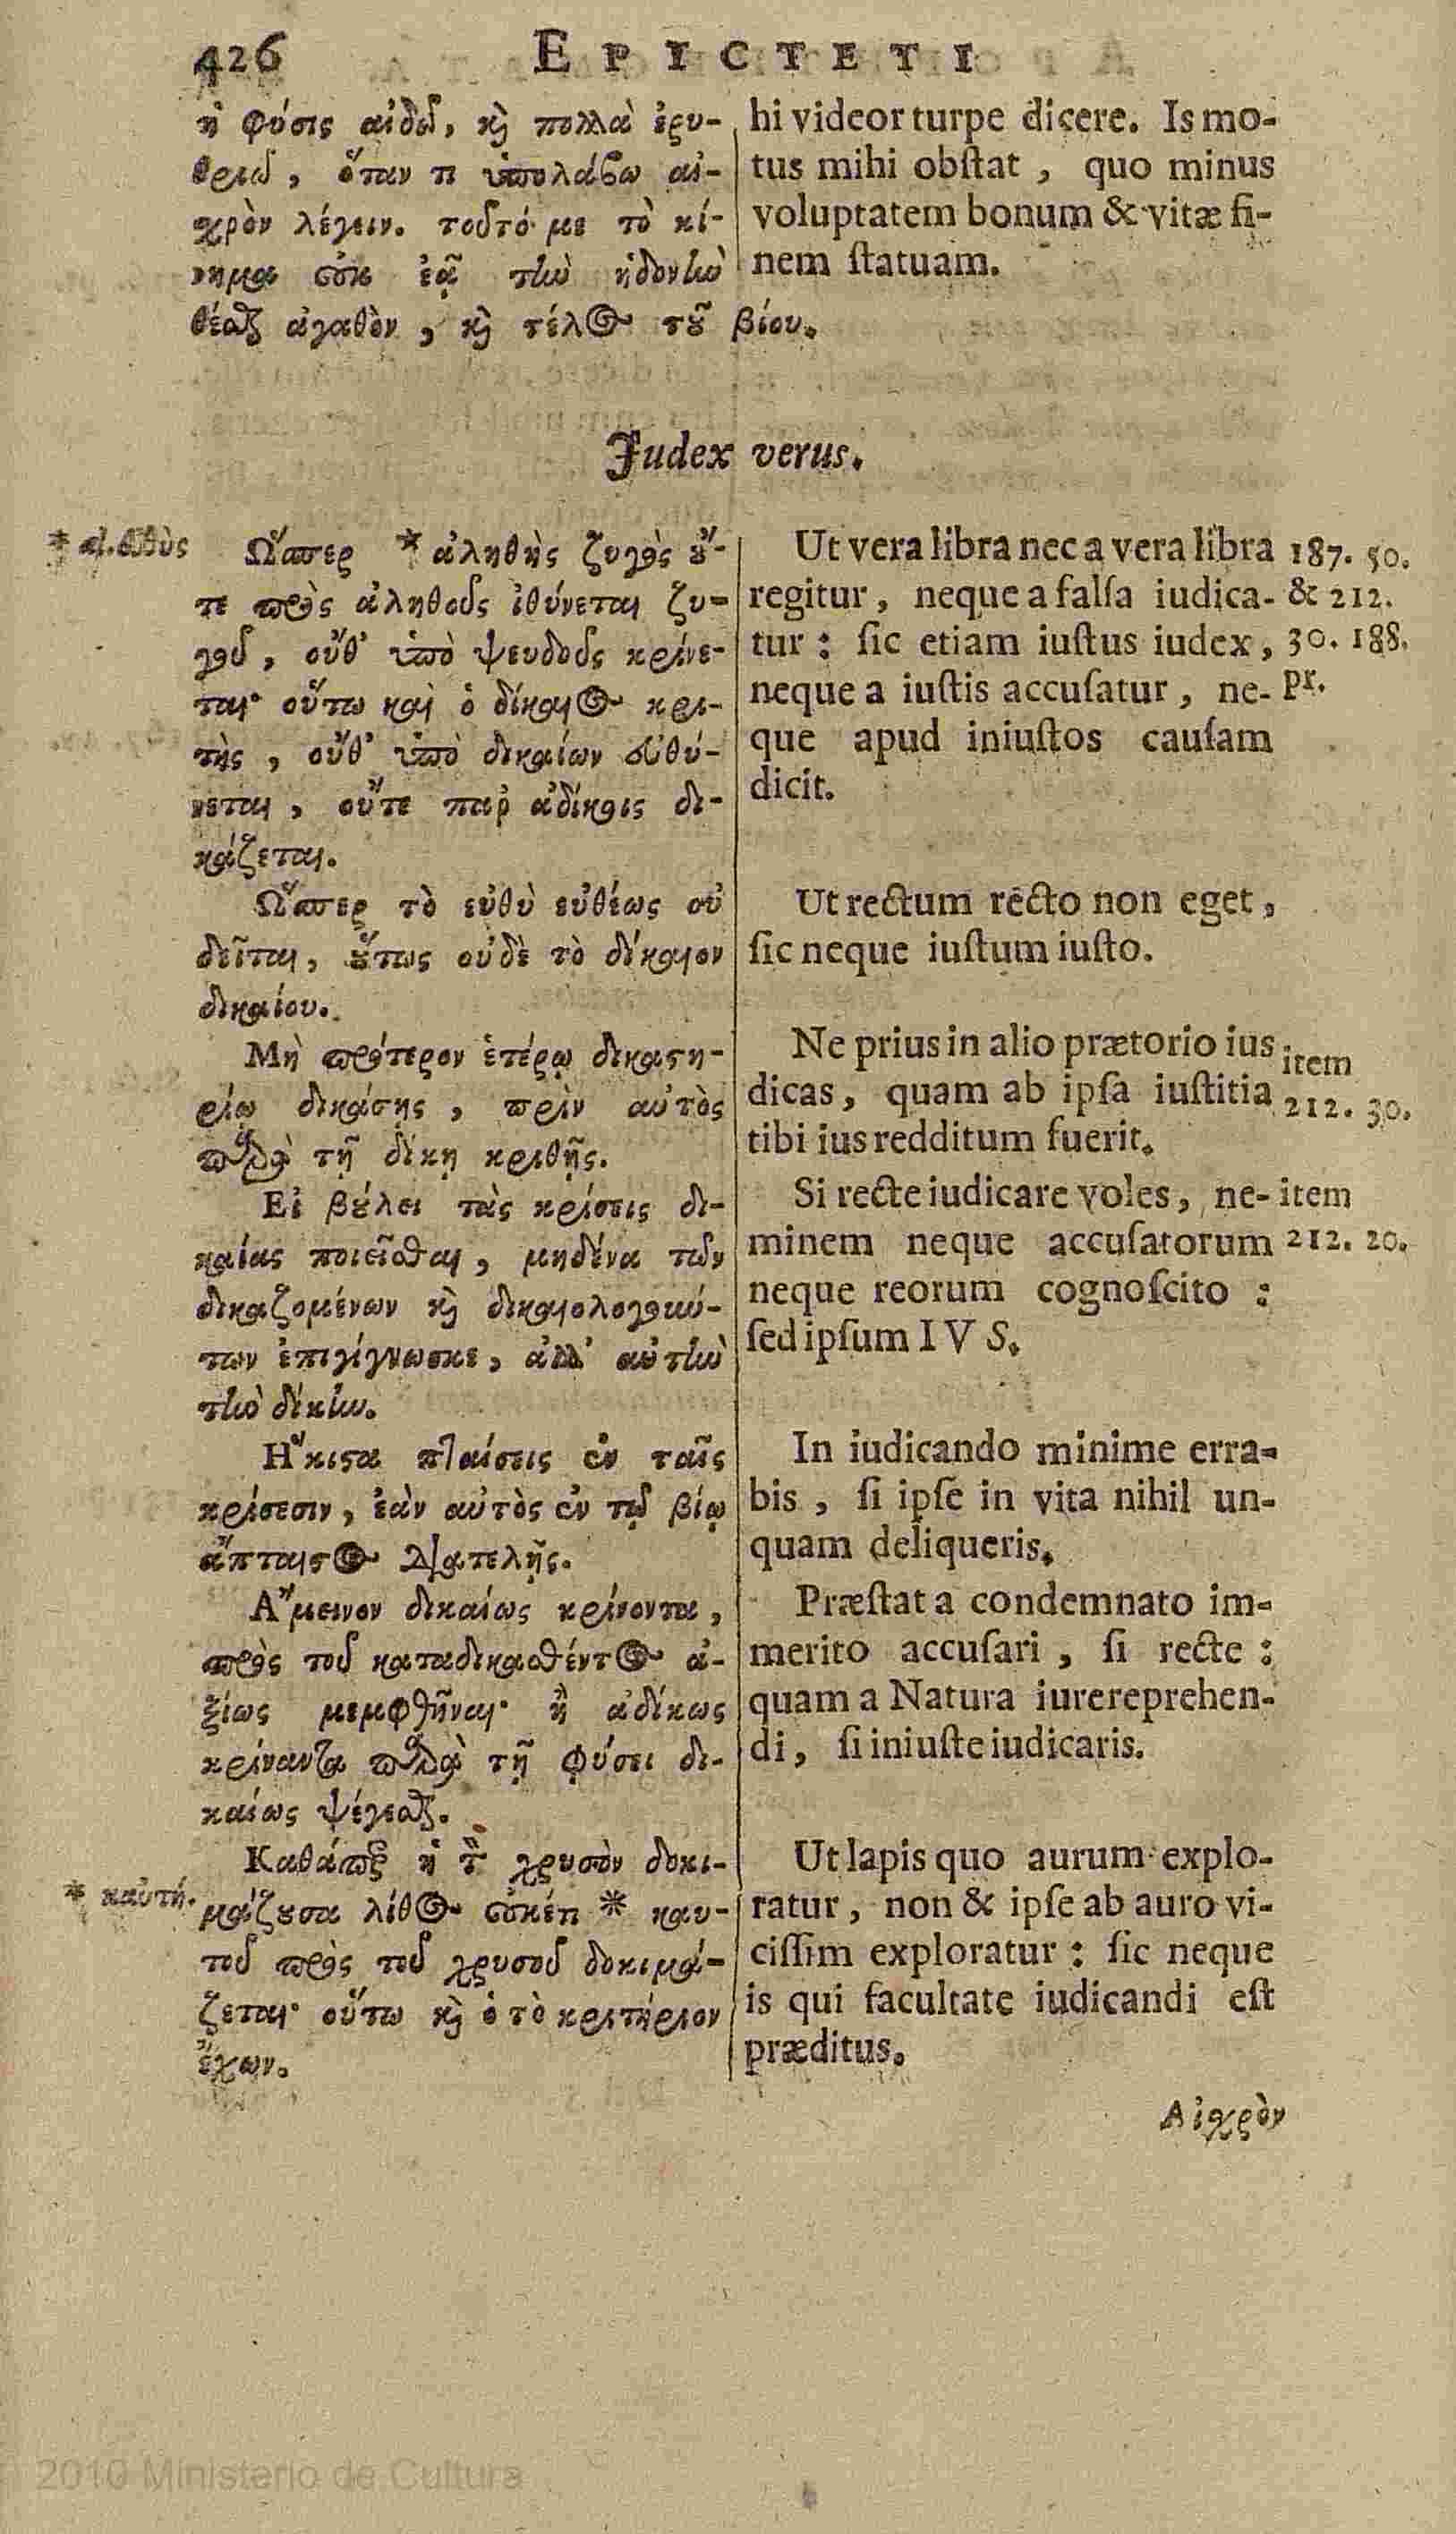 426 EPICTETI
ἡ φύσις αἰδῶ, καὶ πολλὰ ἐρυ-
θριῶ, ὅταν τι ὑπολάβω αἰ-
χρὸν λέγειν. τοῦτό με τὸ κί-
νημα οὐκ ἐᾷ τὴν ἡδονὴν
θέσθαι ἀγαθὸν, καὶ τέλος τοῦ βίου.
hi videor turpe dicere. Is mo-
tus mihi obſtat, quo minus
voluptatem bonum & vitæ fi-
nem ſtatuam.
Judex verus.
* αλ. εὐθὺς
Ὥσπερ * ἀληθὴς ζυγὸς οὔ-
τε πρὸς ἀληθοῦς ἰθύνεται ζυ-
γοῦ, οὔθ' ὑπὸ ψευδοῦς κρίνε-
ται· οὕτω καὶ ὁ δίκαιος κρι-
τὴς, οὔθ' ὑπὸ δικαίων εὐθύ-
νεται, οὔτε παρ' ἀδίκοις δι-
κάζεται.
Ὥσπερ τὸ εὐθὺ εὐθέως οὐ
δεῖται, οὕτως οὐδὲ τὸ δίκαιον
δικαίου.
Μὴ πρότερον ἑτέρῳ δικαστη-
ρίῳ δικάσῃς, πρὶν αὐτὸς
παρὰ τῇ δίκῃ κριθῇς.
Εἰ βούλει τὰς κρίσεις δι-
καίας ποιεῖσθαι, μηδένα τῶν
δικαζομένων καὶ δικαιολογού-
των ἐπιγίγνωσκε, ἀλλ' αὐτὴν
τὴν δίκην.
Ἥκιστα πταίσεις ἐν ταῖς
κρίσεσιν, ἐὰν αὐτὸς ἐν τῷ βίῳ
ἄπταιστος διατελῇς.
Ἄμεινον δικαίως κρίνοντα,
πρὸς τοῦ καταδικασθέντος ἀ-
ξίως μεμφθῆναι· ἢ ἀδίκως
κρίναντα παρὰ τῇ φύσει δι-
καίως ψέγεσθαι.
Καθάπερ ἡ τὸν χρυσὸν δοκι-
* καὐτή.
μάζουσα λίθος οὐκέτι * καυ-
τοῦ πρὸς τοῦ χρυσοῦ δοκιμά-
ζεται· οὕτω καὶ ὁ τὸ κριτήριον
ἔχων.
Ut vera libra nec a vera libra 187. 50.
regitur, neque a falſa iudica- & 212.
tur: ſic etiam iuſtus iudex, 30. 188.
neque a iuſtis accuſatur, ne- pr.
que apud iniuſtos cauſam
dicit.
Ut rectum recto non eget,
ſic neque iuſtum iuſto.
Ne prius in alio prætorio ius item
dicas, quam ab ipſa iuſtitia 212. 30.
tibi ius redditum fuerit.
Si recte iudicare voles, ne- item
minem neque accuſatorum 212. 20.
neque reorum cognoſcito:
ſed ipſum IVS.
In iudicando minime erra-
bis, ſi ipſe in vita nihil un-
quam deliqueris.
Præſtat a condemnato im-
merito accuſari, ſi recte:
quam a Natura iure reprehen-
di, ſi iniuſte iudicaris.
Ut lapis quo aurum explo-
ratur, non & ipſe ab auro vi-
ciſſim exploratur: ſic neque
is qui facultate iudicandi eſt
præditus.
Αἰχρὸν
2010 Ministerio de Cultura